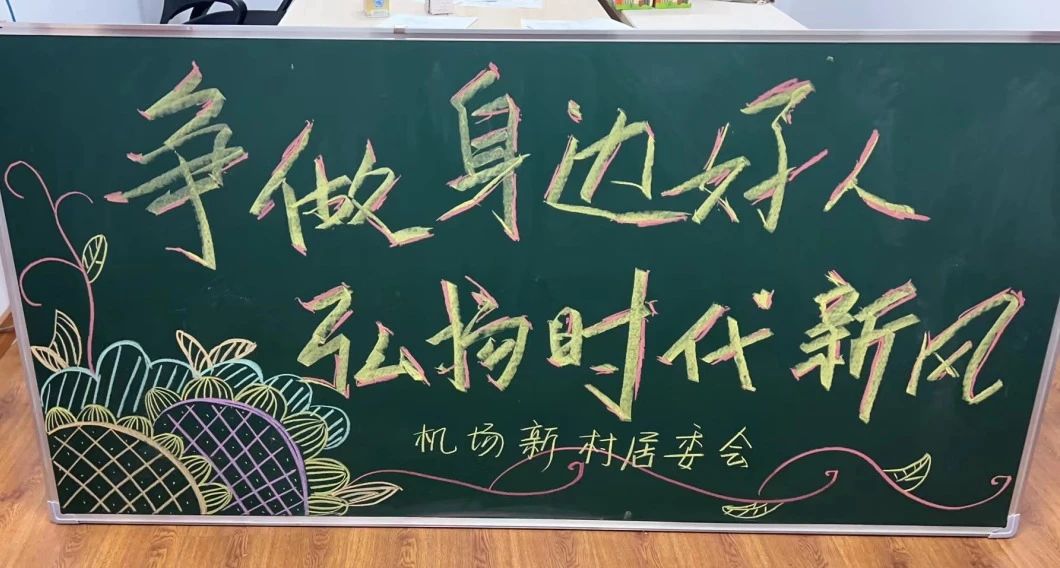 争做身边好人
弘扬时代新风
机场新村居委会